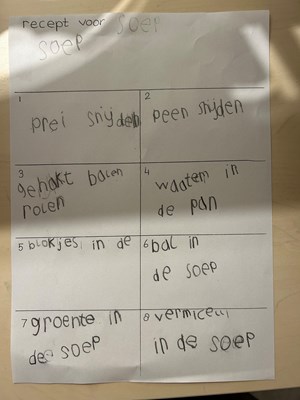 recept voor soep
soep
1
prei snijden
2
peen snijden
3
gehakt balen
rolen
4
waatem in
de pan
5 blokjes in de
6 bal in
de soep
7 groente in
de soep
8 vermicelli
in de soep